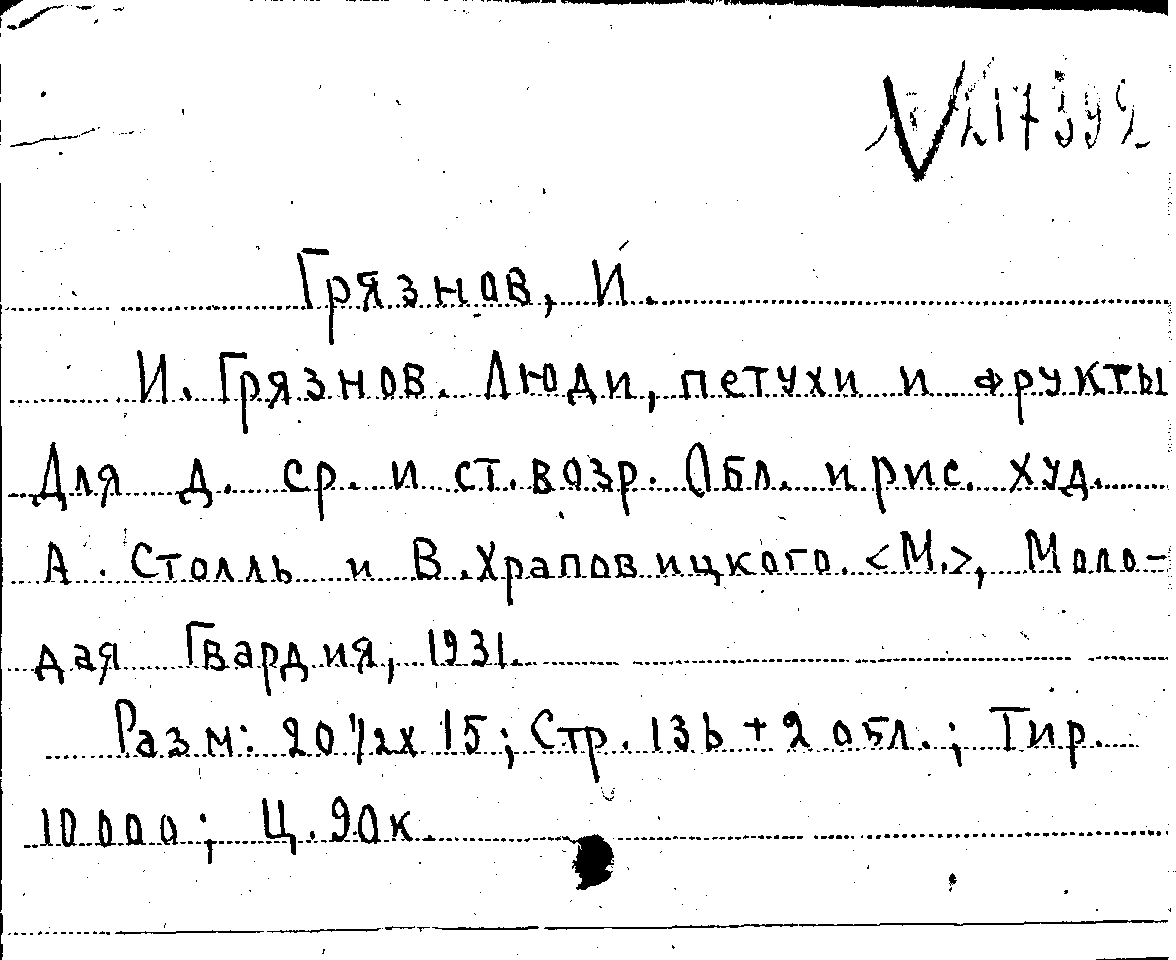 217392
Грязнов, И.
И. Грязнов. Люди, петухи и фрукты
Для д. ср. и ст. возр. Обл. и рис. худ.
А. Столль и В. Храповицкого. <М.>, Моло-
дая Гвардия, 1931.
Разм: 20 1/2 х 15; Стр. 136 + 2 обл.; Тир.
10000; Ц. 90 к.